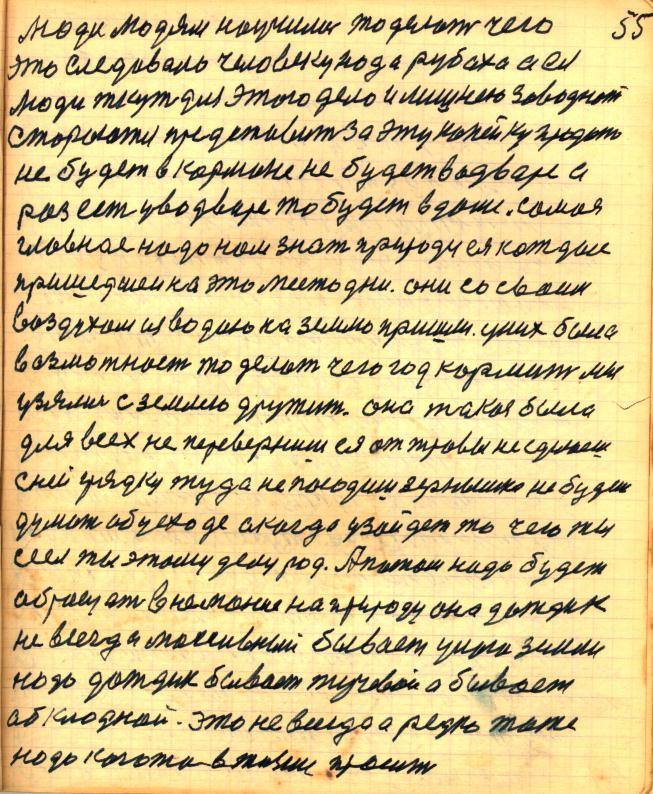 люди людям научили то делать чего 55
это следовало человеку нода рубаха али
люди ткут для этого дело и лишнею заводной
стороности представит за эту копейку продать
не будет в кормоне не будет водваре а
роз есть уводваре то будет вдоме. самоя
главное нодо ном знат природу ея кождое
пришедшеи на это место дни. они со своим
воздухом и водою на землю пришли. у них была
возмотность то делат чего год кормит мы
узяли с землею дружит. она такоя была
для всех не перевернеш ея от травы не сделаеш
с ней грядку туда не посодиш зернышко не будеш
думат обуходе а когдо узойдет то чего ты
сеел ты этому делу род. А потом нодо будет
оброщат внемоние на природу она дождик
не всегда моженный бывает у нта земли
нодо дождик бывает тучевой а бывает
обклодной. Это не всегда а редко тоже
нодо когото в жизни просит